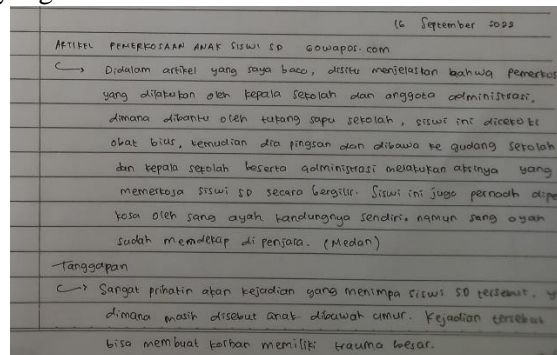 16 September 2022
ARTIKEL PEMERKOSAAN ANAK SISWI SD Gowapos.com
Didalam artikel yang saya baca, disitu menjelaskan bahwa pemerkos
yang dilakukan oleh kepala sekolah dan anggota administrasi,
dimana dibantu oleh tukang sapu sekolah, siswi ini dicekoki
obat bius, kemudian dia pingsan dan dibawa ke gudang sekolah
dan kepala sekolah beserta administrasi melakukan aksinya yang
memerkosa siswi SD secara bergilir. Siswi ini juga pernadh dipe
kosa oleh sang ayah kandungnya sendiri, namun sang ayah
sudah memdekap di penjara. (Medan)
Tanggapan
Sangat prihatin akan kejadian yang menimpa siswi SD tersebut, y
dimana masih disebut anak dibawah umur. Kejadian tersebut
bisa membuat korban memiliki trauma besar.